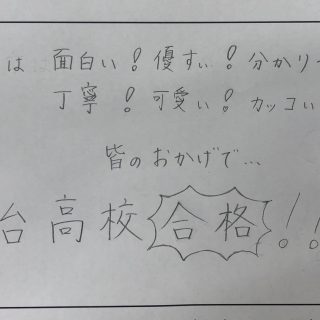 は 面白い!優すぃ!分かりや
丁寧!可愛い!カッコい
皆のおかげで…
台高校合格!!